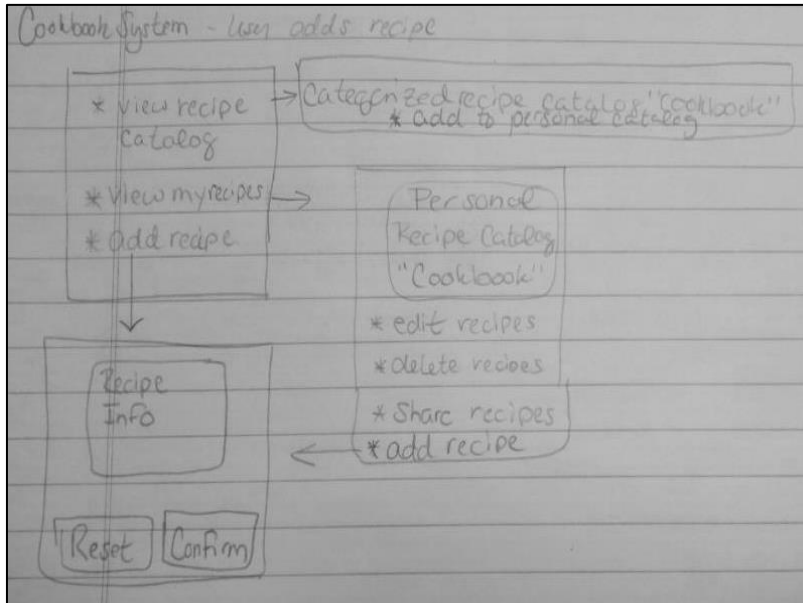 Cookbook System - User adds recipe
* View recipe
Catalog
* View my recipes
* add recipe
Categorized recipe catalog "Cookbook"
* add to personal catalog
Personal
Recipe Catalog
"Cookbook"
* edit recipes
* delete recipes
* Share recipes
* add recipe
Recipe
Info
Reset
Confirm